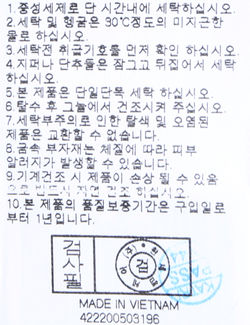 1.중성세제로 단 시간내에 세탁하십시오.
2.세탁 및 헹굼은 30℃정도의 미지근한
물로 하십시오.
3.세탁전 취급기호를 먼저 확인 하십시오.
4.지퍼나 단추들은 잠그고 뒤집어서 세탁
하십시오.
5 본 제품은 단일단독 세탁 하십시오.
6 탈수 후 그늘에서 건조시켜 주십시오.
7.세탁부주의로 인한 탈색 및 오염된
제품은 교환할 수 없습니다.
8.금속 부자재는 체질에 따라 피부
알러지가 발생할 수 있습니다.
9.기계건조 시 제품이 손상 될 수 있음
으로 반드시 자연 건조 하십시오
10.본 제품의 품질보증기간은 구입일로
부터 1년입니다.
검사필
검
MADE IN VIETNAM
422200503196